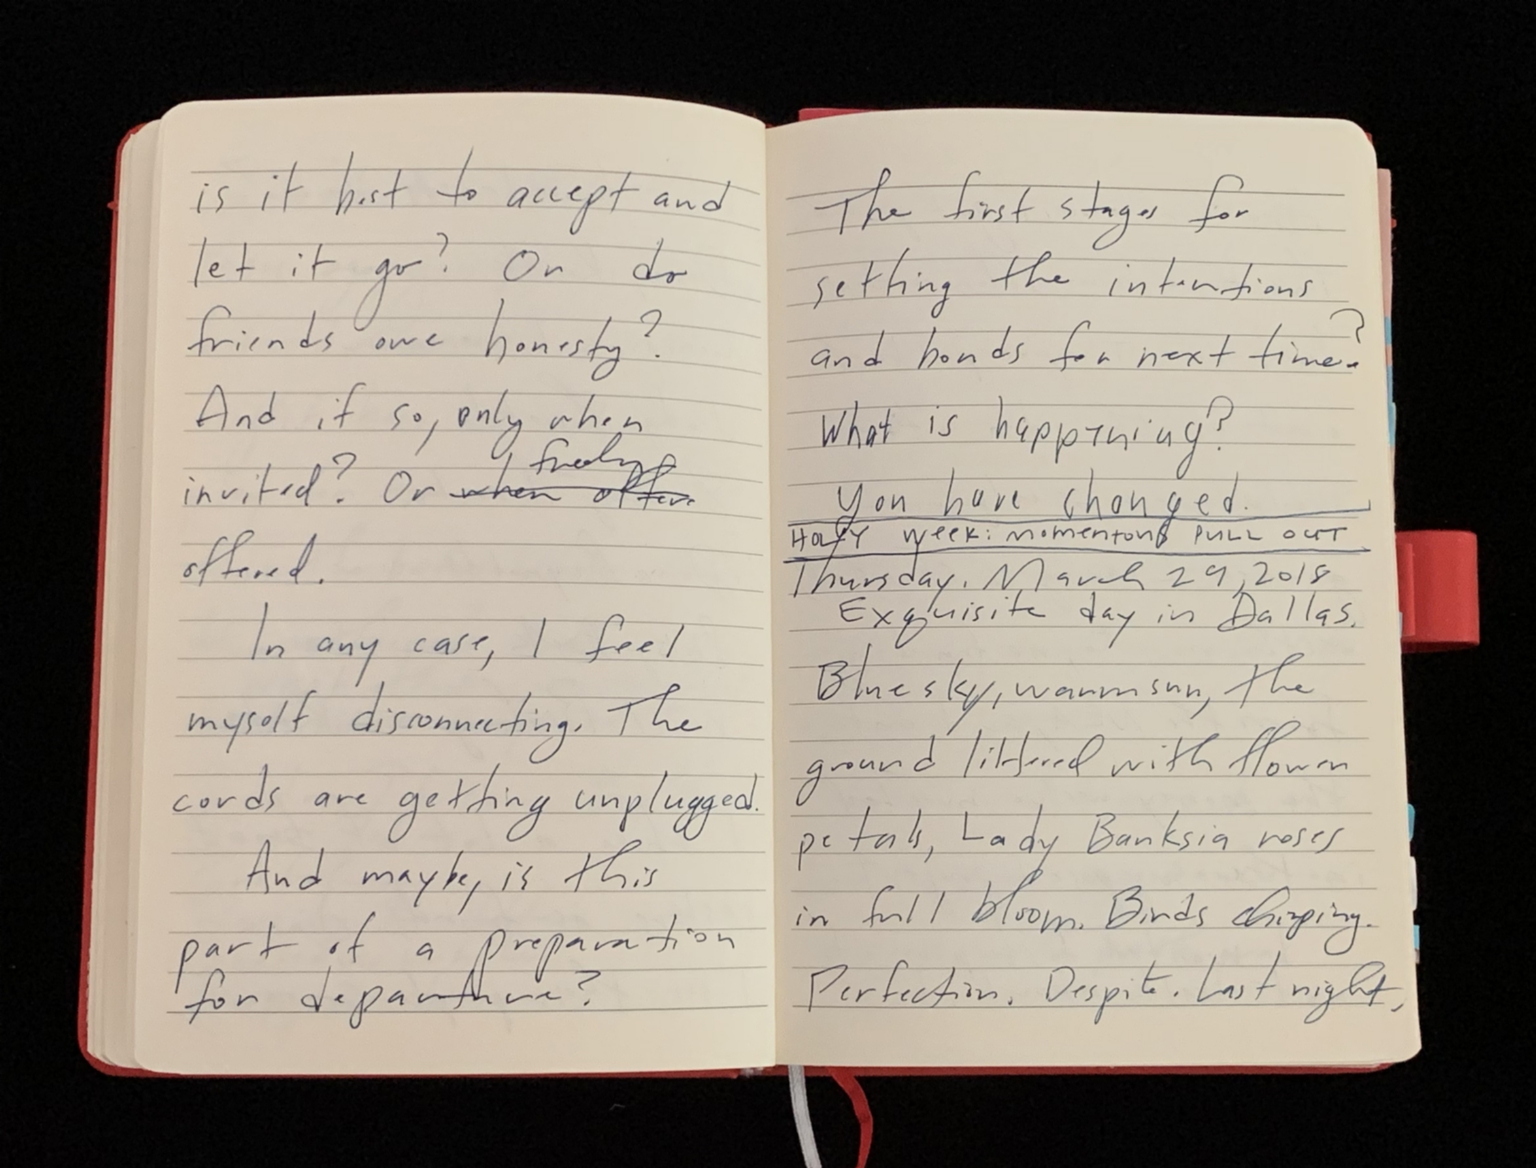 is it best to accept and
let it go? Or do
friends owe honesty?
And if so, only when
freely
invited? Or when offere
offered.
In any case, I feel
myself disconnecting. The
cords are getting unplugged.
And maybe, is this
part of a preparation
for departure?
The first stages for
setting the intentions
and bonds for next time?
What is happening?
You have changed.
HOLY WEEK: MOMENTOUS PULL OUT
Thursday. March 29, 2018
Exquisite day in Dallas.
Blue sky, warm sun, the
ground littered with flower
petals, Lady Banksia roses
in full bloom. Birds chirping.
Perfection. Despite. Last night,